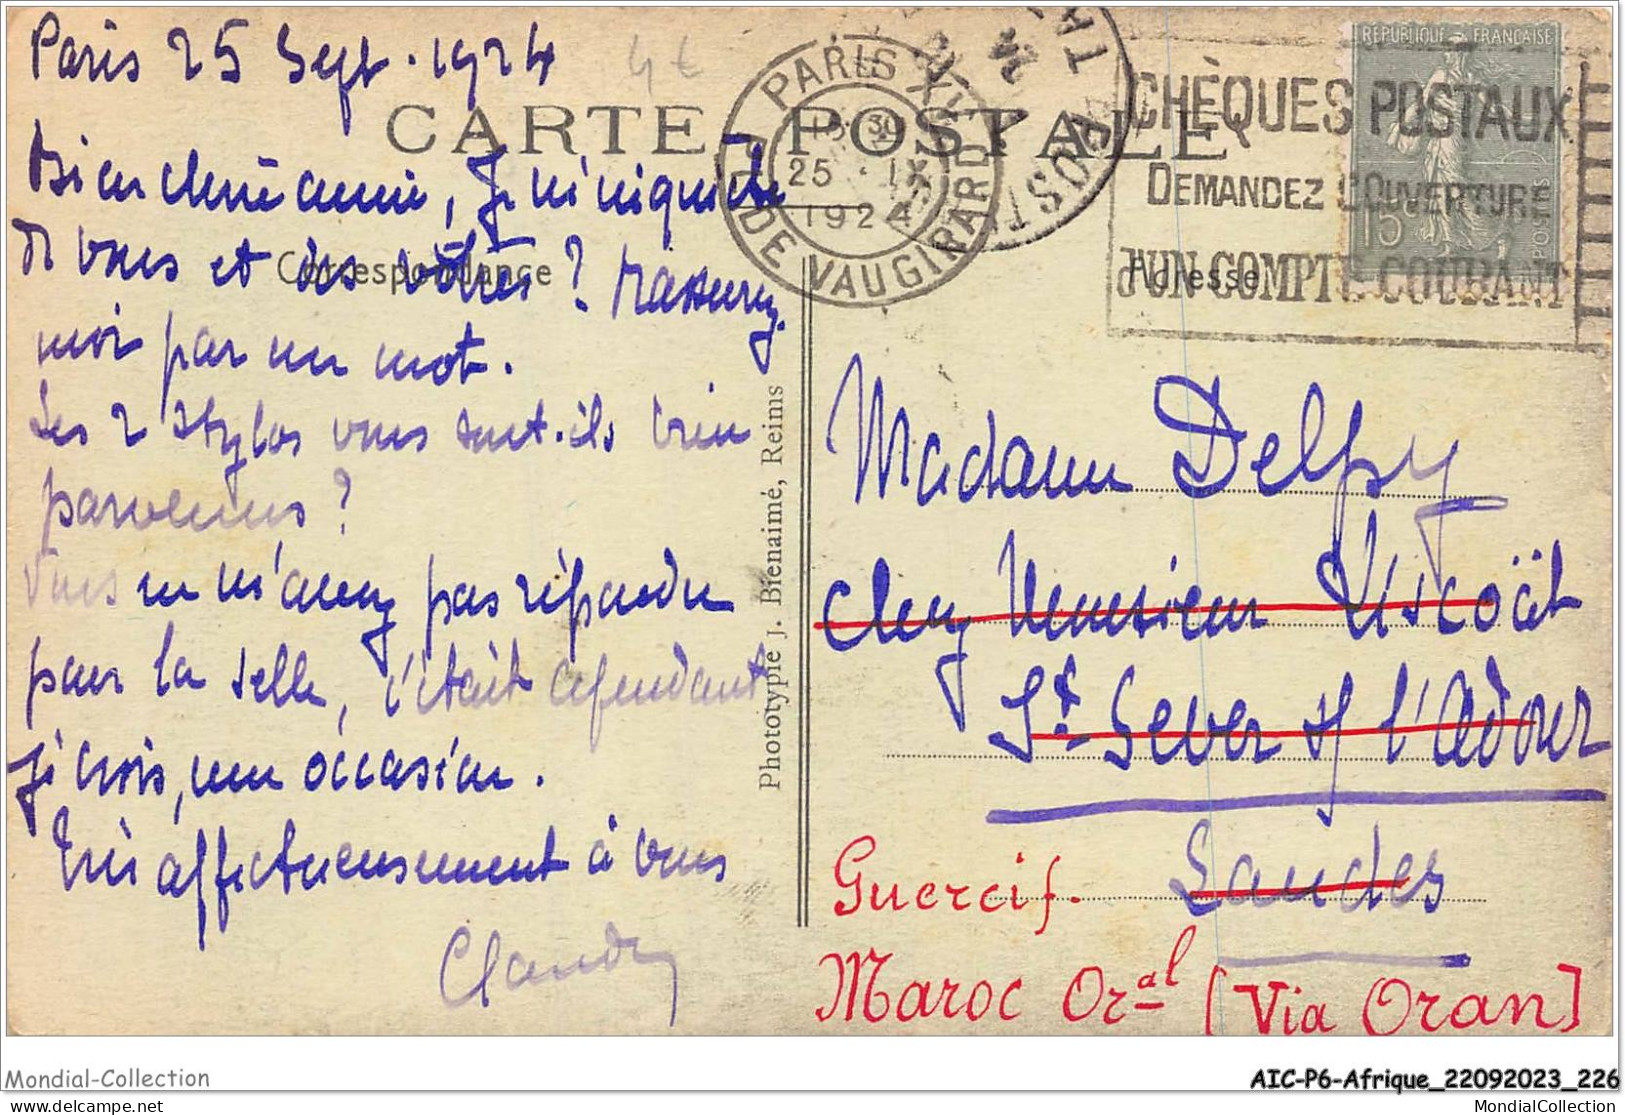 Paris 25 Sept. 1924
4€
CARTE POSTALE
Bien chère amie, Je m'inquiète
de vous et des vôtres ? rassurez
moi par un mot.
Les 2 stylos vous sont-ils bien
parvenus ?
Vous ne m'avez pas répondu
pour la selle, c'était cependant
je crois, une occasion.
Très affectueusement à vous
Correspondance
Photototypie J. Bienaimé, Reims
PARIS XV
DE VAUGIRARD
25 IX
1924
POSTA
CHÈQUES POSTAUX
DEMANDEZ L'OUVERTURE
D'UN COMPTE COURANT
REPUBLIQUE FRANÇAISE
15c
POSTES
Adresse
Madame Delpy
chez Monsieur
St Sever s/ l'Adour
Landes
Guercif.
Maroc Oral (Via Oran)
Mondial-Collection
AIC-P6-Afrique_22092023_226
MondialCollection